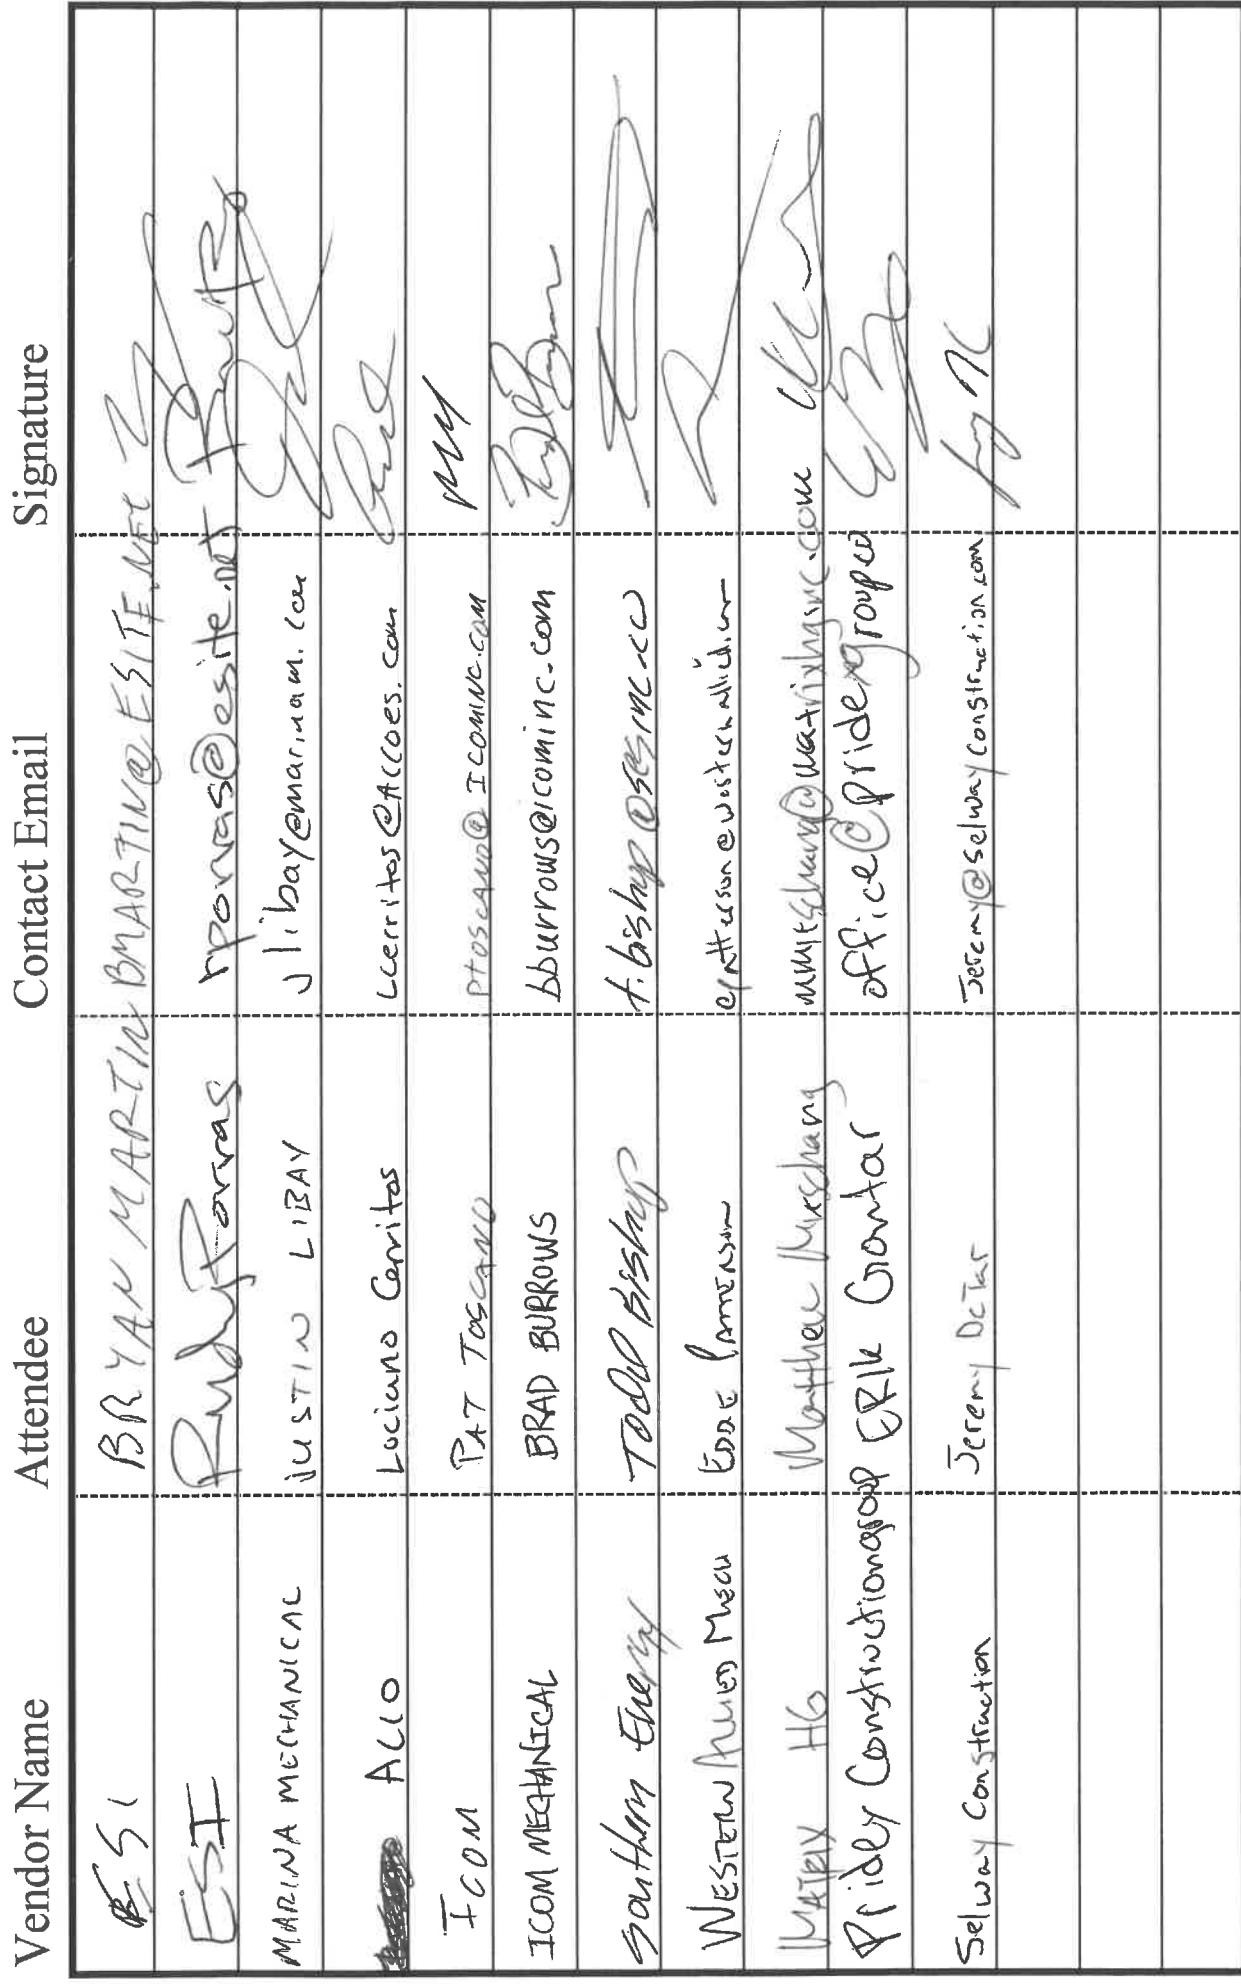 Vendor Name Attendee Contact Email Signature
ESI BRYAN MARTIN BMARTIN@ESITE.NET
ESI Rudy Porras rporras@esite.net
MARINA MECHANICAL JUSTIN LIBAY jlibay@marinam.com
ACCO Luciano Cerritos Lcerritos@Accoes.com
ICOM PAT TOSCANO PTOSCANO@ICOMINC.COM
ICOM MECHANICAL BRAD BURROWS bburrows@icominc.com
Southern Energy Todd Bishop t.bishop@
WESTERN ALLIED MECH EDDIE PATTERSON epatterson@westernallied.com
MATRIX HG Matthew Mieschang @matrixhginc.com
Pridex Constructiongroup ERIk Grontar office@pridexgroup.co
Selway Construction Jeremy DeTar Jeremy@selwayconstruction.com